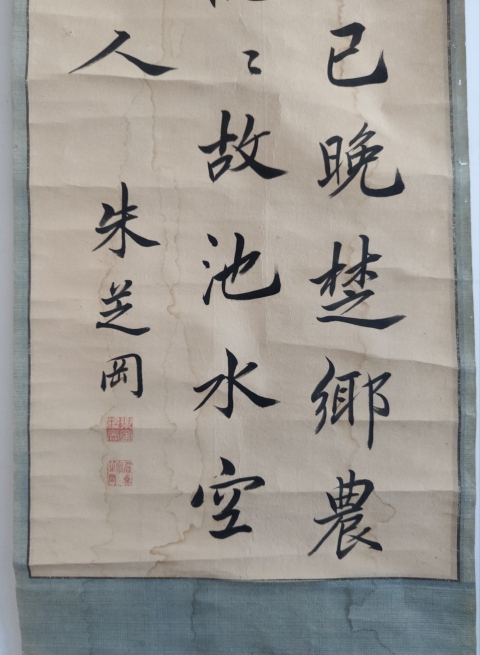 已晚楚鄉農
〻故池水空
人 朱芝岡